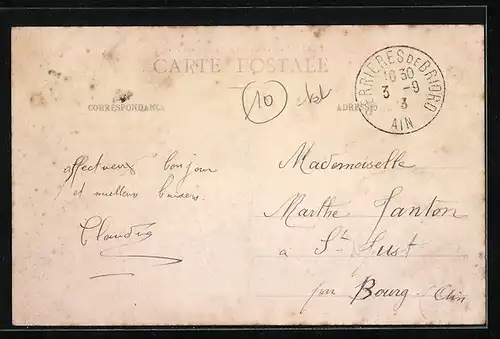 CARTE POSTALE
CORRESPONDANCE
ADRESSE
SERRIERES DE BRIORD
16 30
3 - 9
3
AIN
10
affectueux bonjour
et meilleurs baisers.
Claudia
Mademoiselle
Marthe Janton
à St Just
par Bourg (Ain